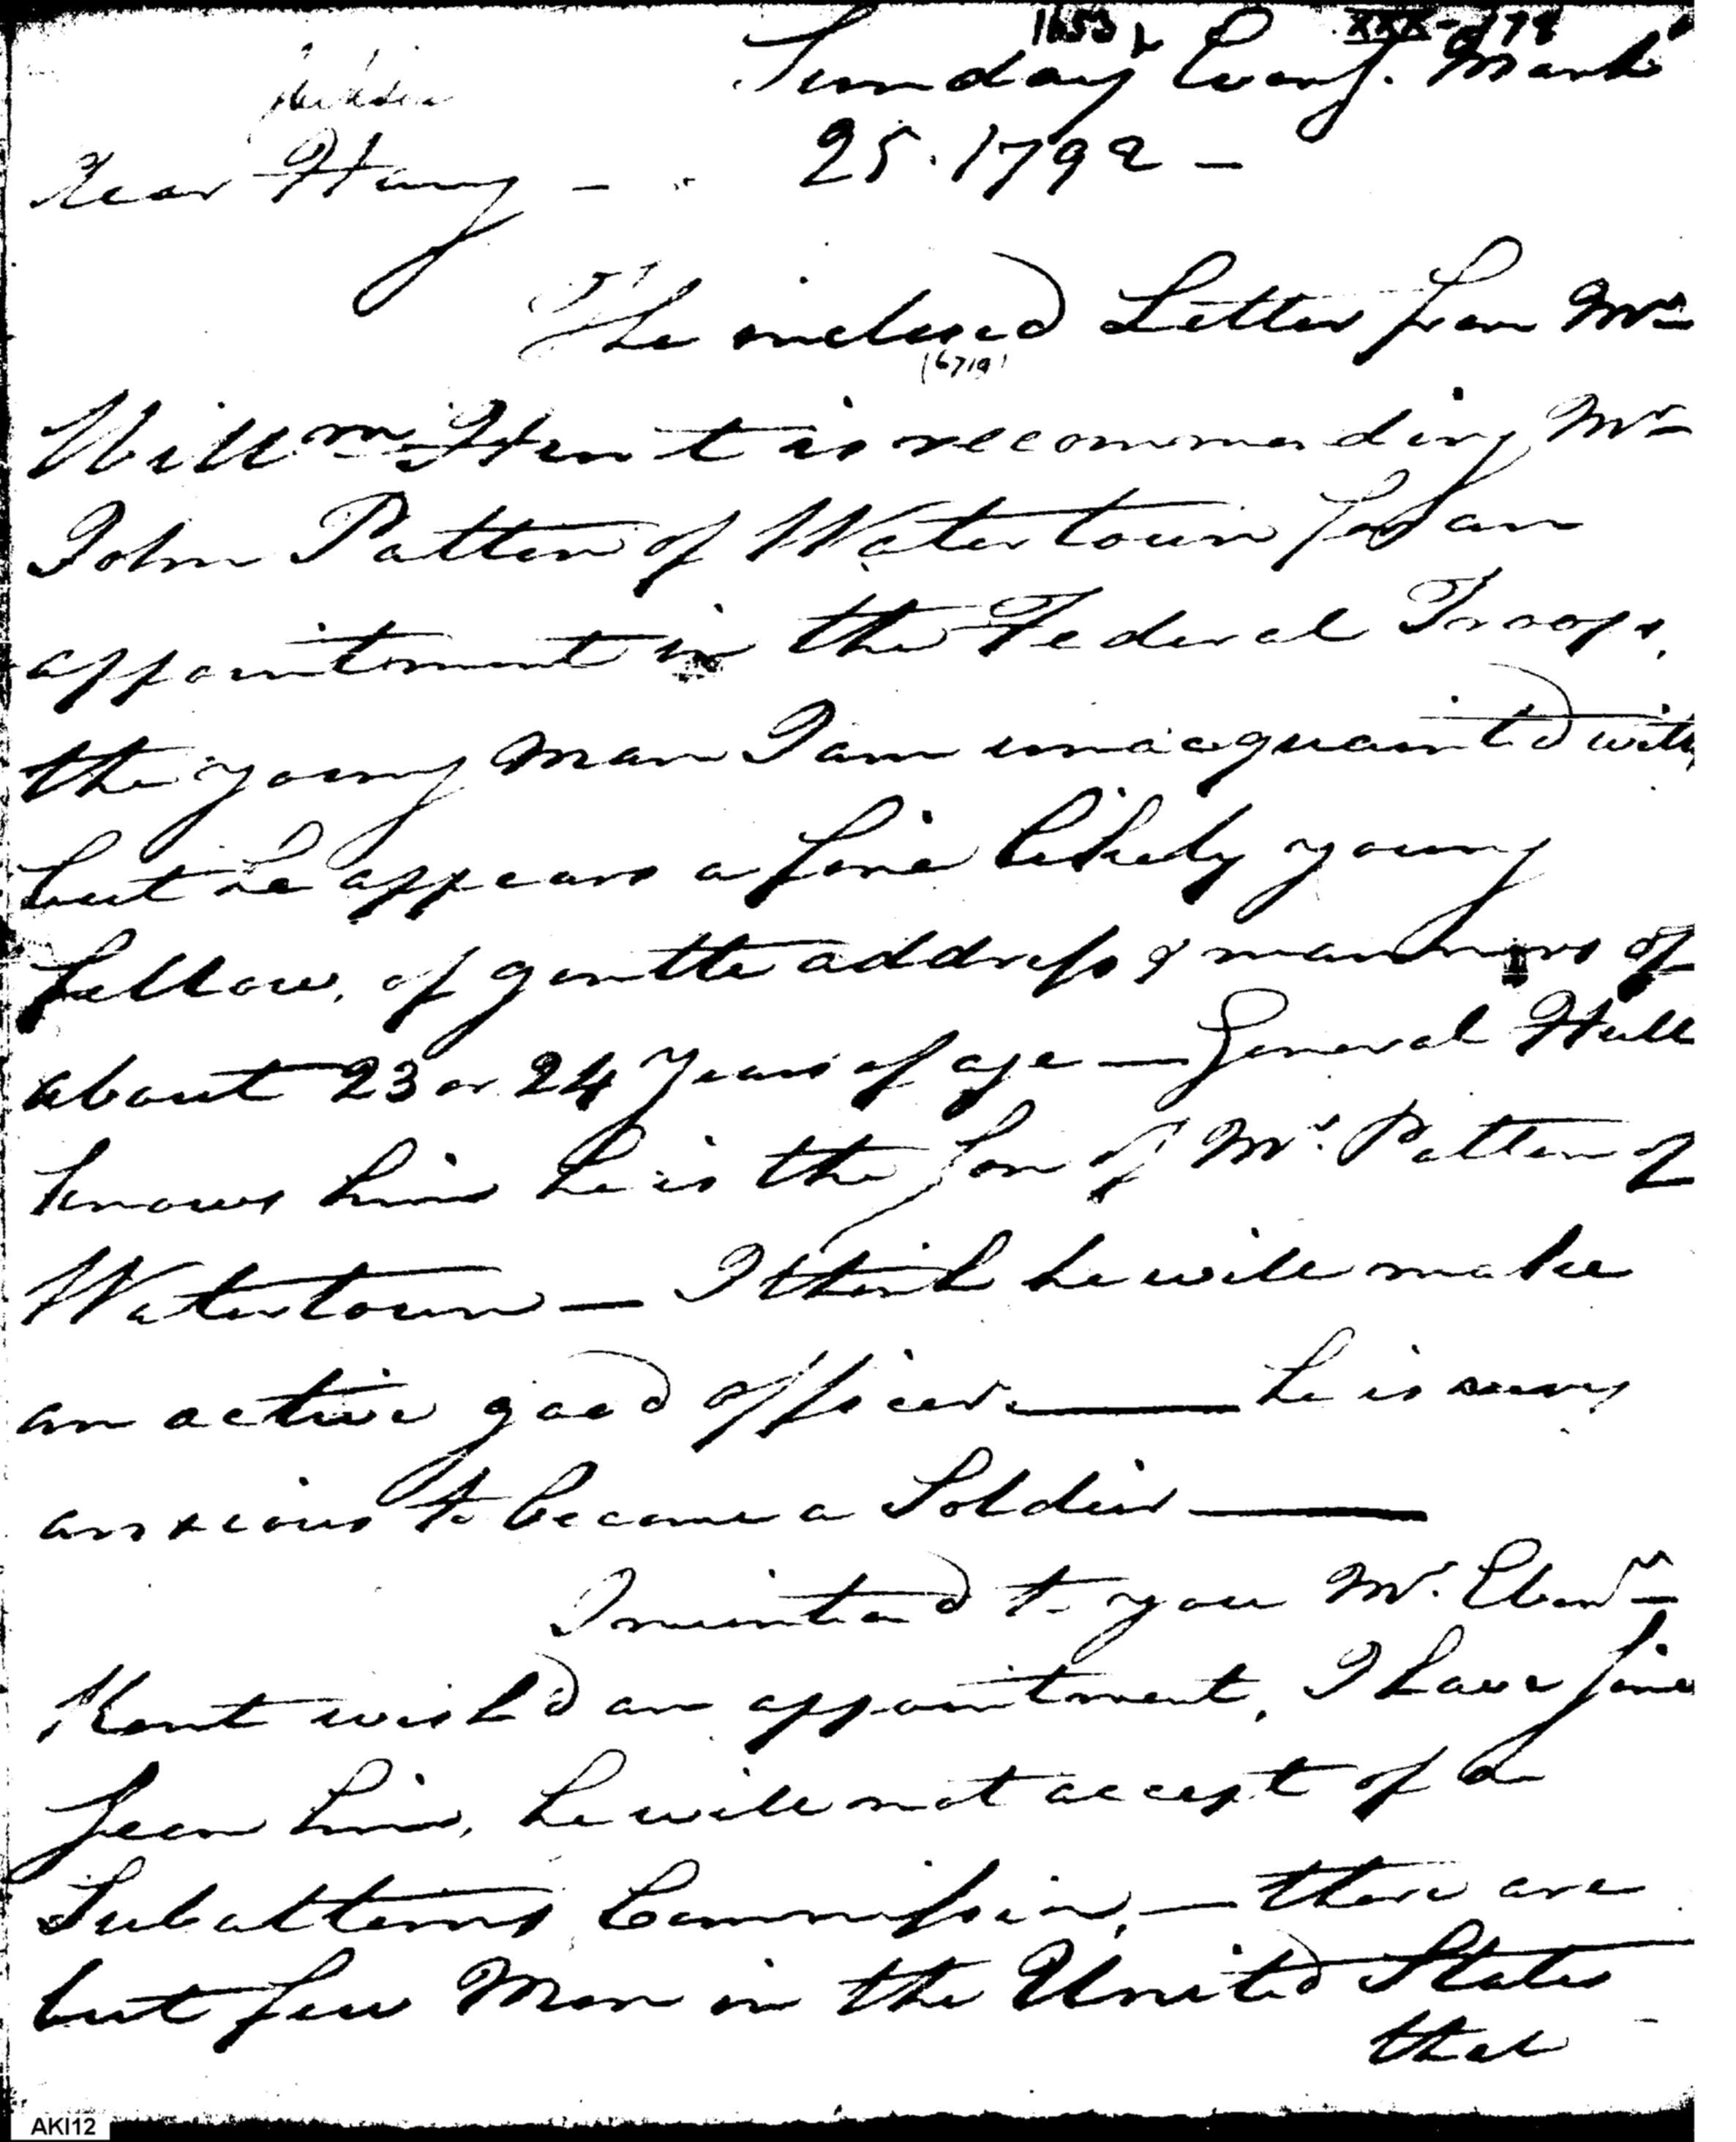 1653 XXX-178
Sunday Eveng. March
25. 1792 —
Dear Harry —
The inclused Letter from Mr
(6719)
Willm Hunt is recommending Mr
John Patten of Watertown for an
appointment in the Federal Troops.
the young Man I am unacquaintd with
but he appears a fine likely young
fellow, of gentle address & manners of
about 23 or 24 Years of age — General Hull
knows him he is the son of Mr. Patten of
Watertown — I think he will make
an active good officer — he is very
anxious to become a Soldier —
I mentiond to you Mr. Ebenr
Kent wishd an appointment, I have since
seen him, he will not accept of a
Subalterns Commission, — there are
but few Men in the Unitd States
that
AKI12